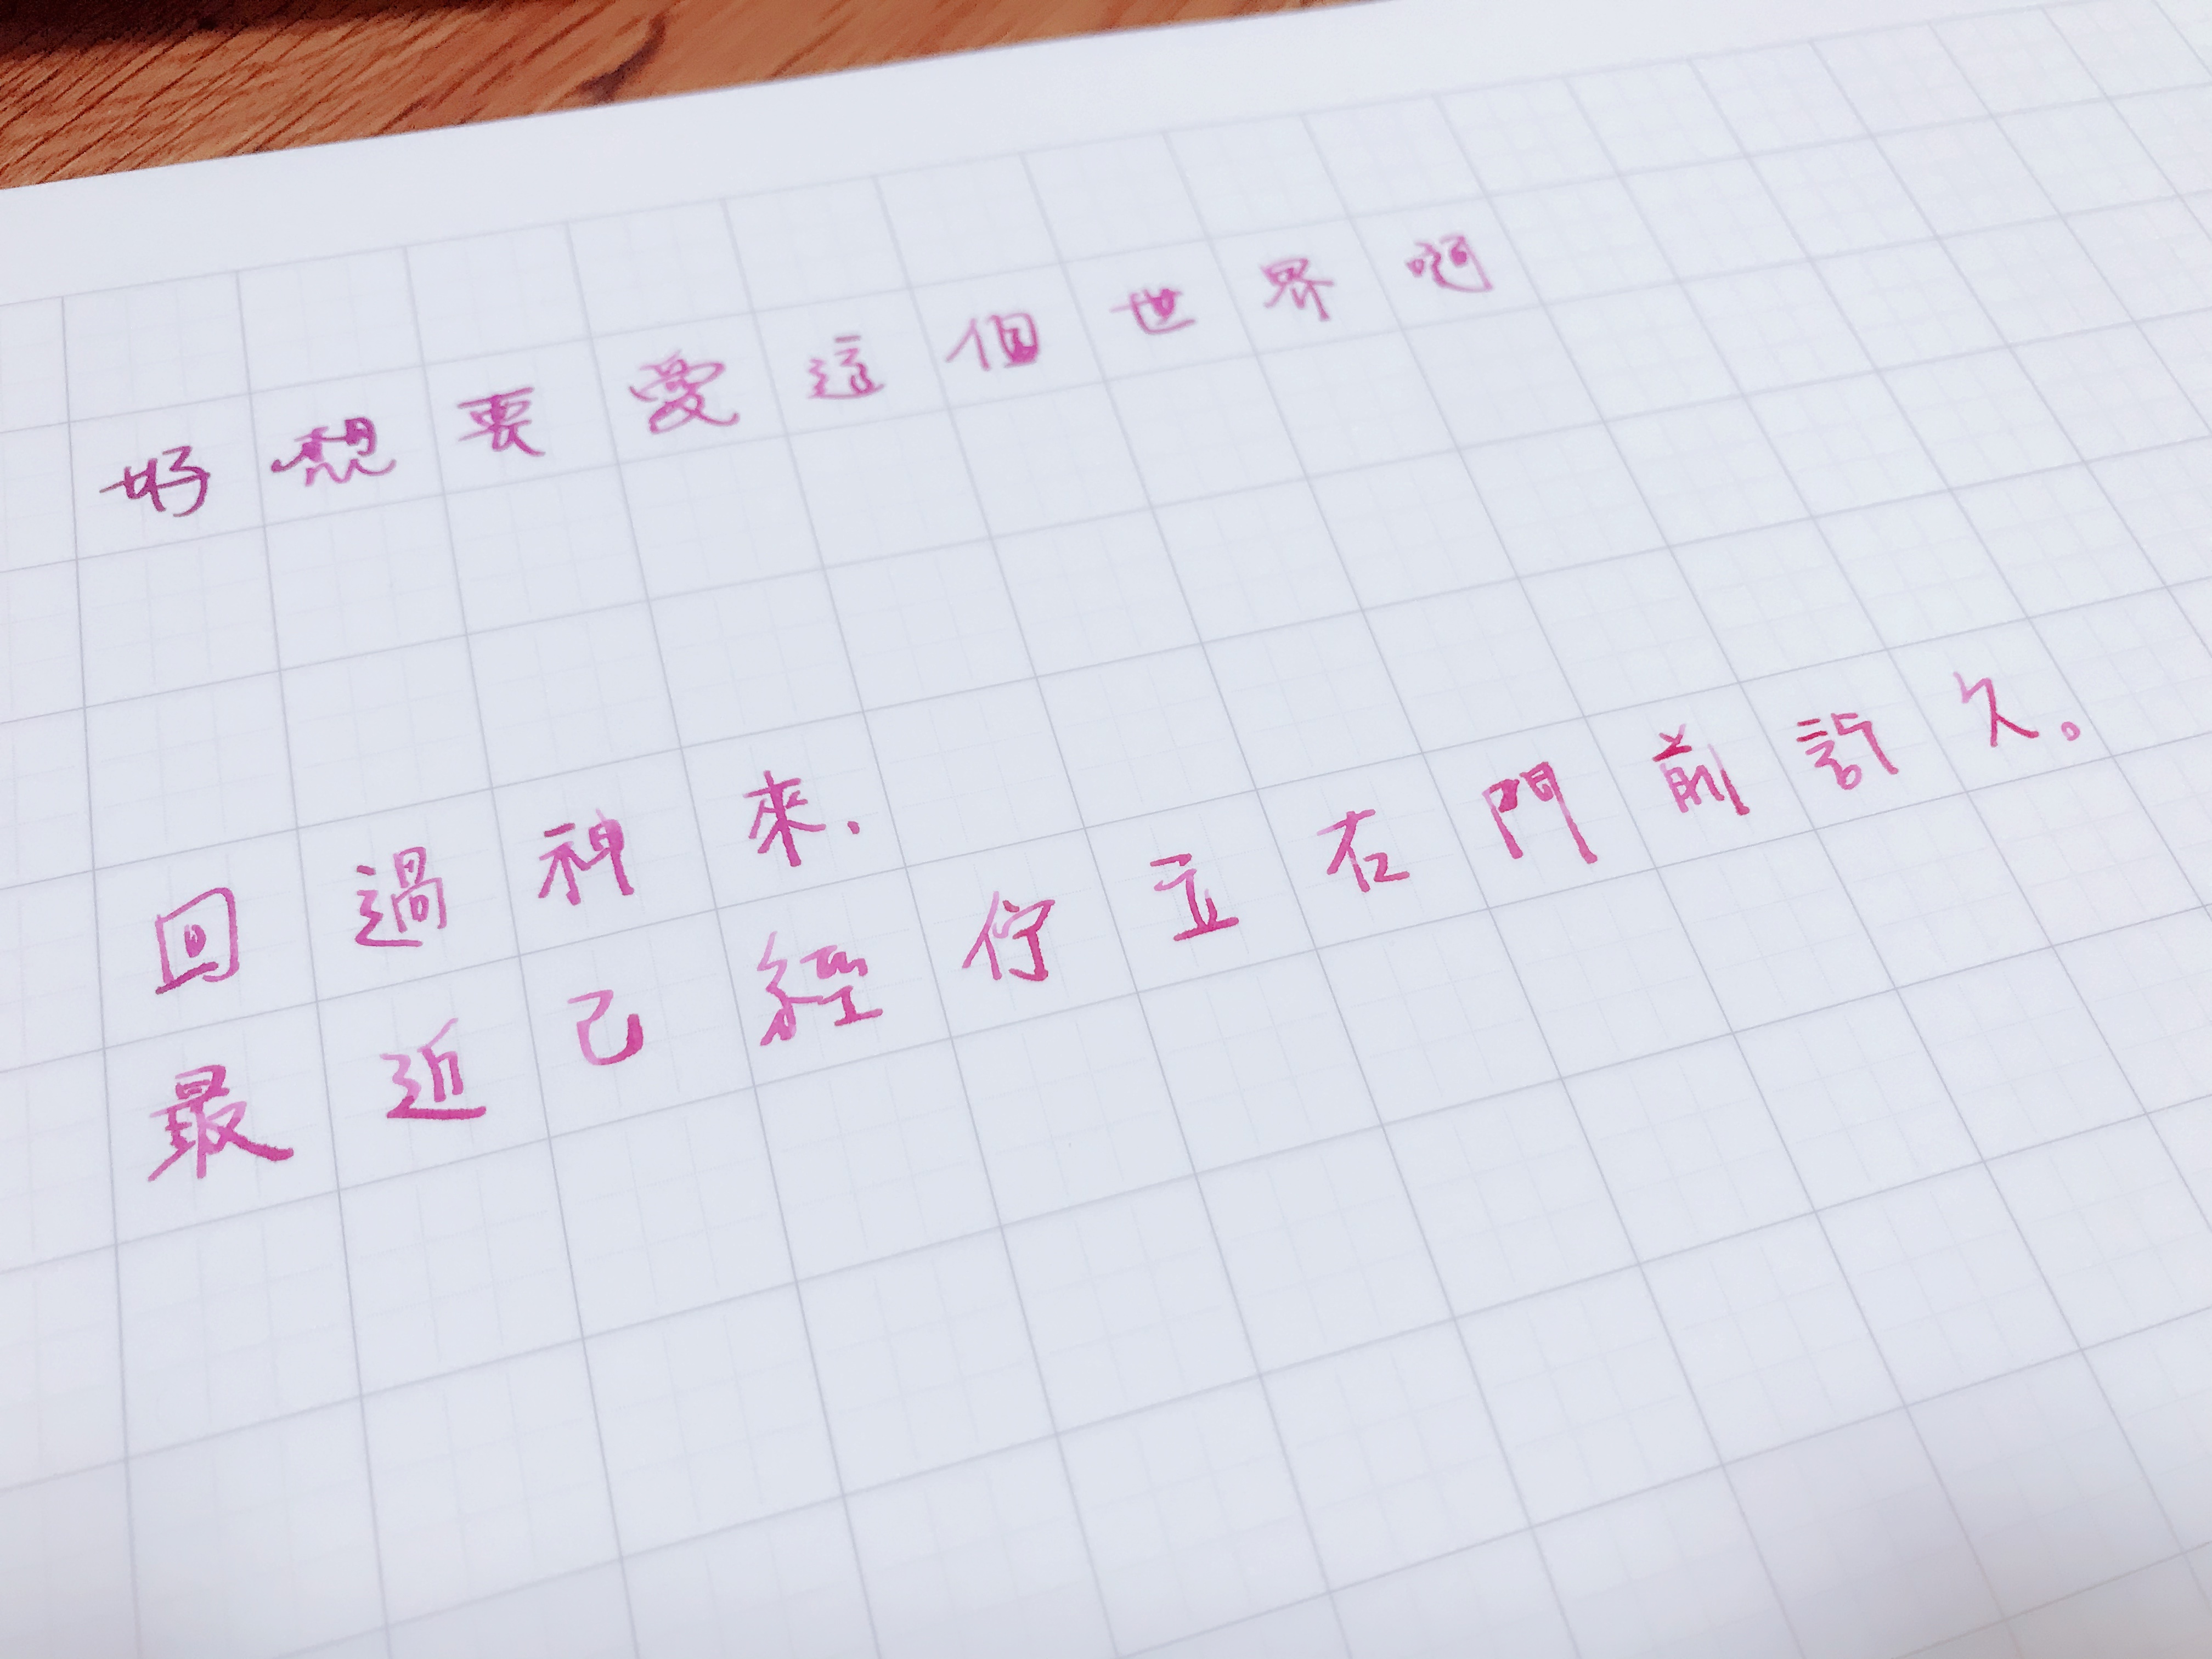 好想要愛這個世界啊
回過神來,
最近已經佇立在門前許久。